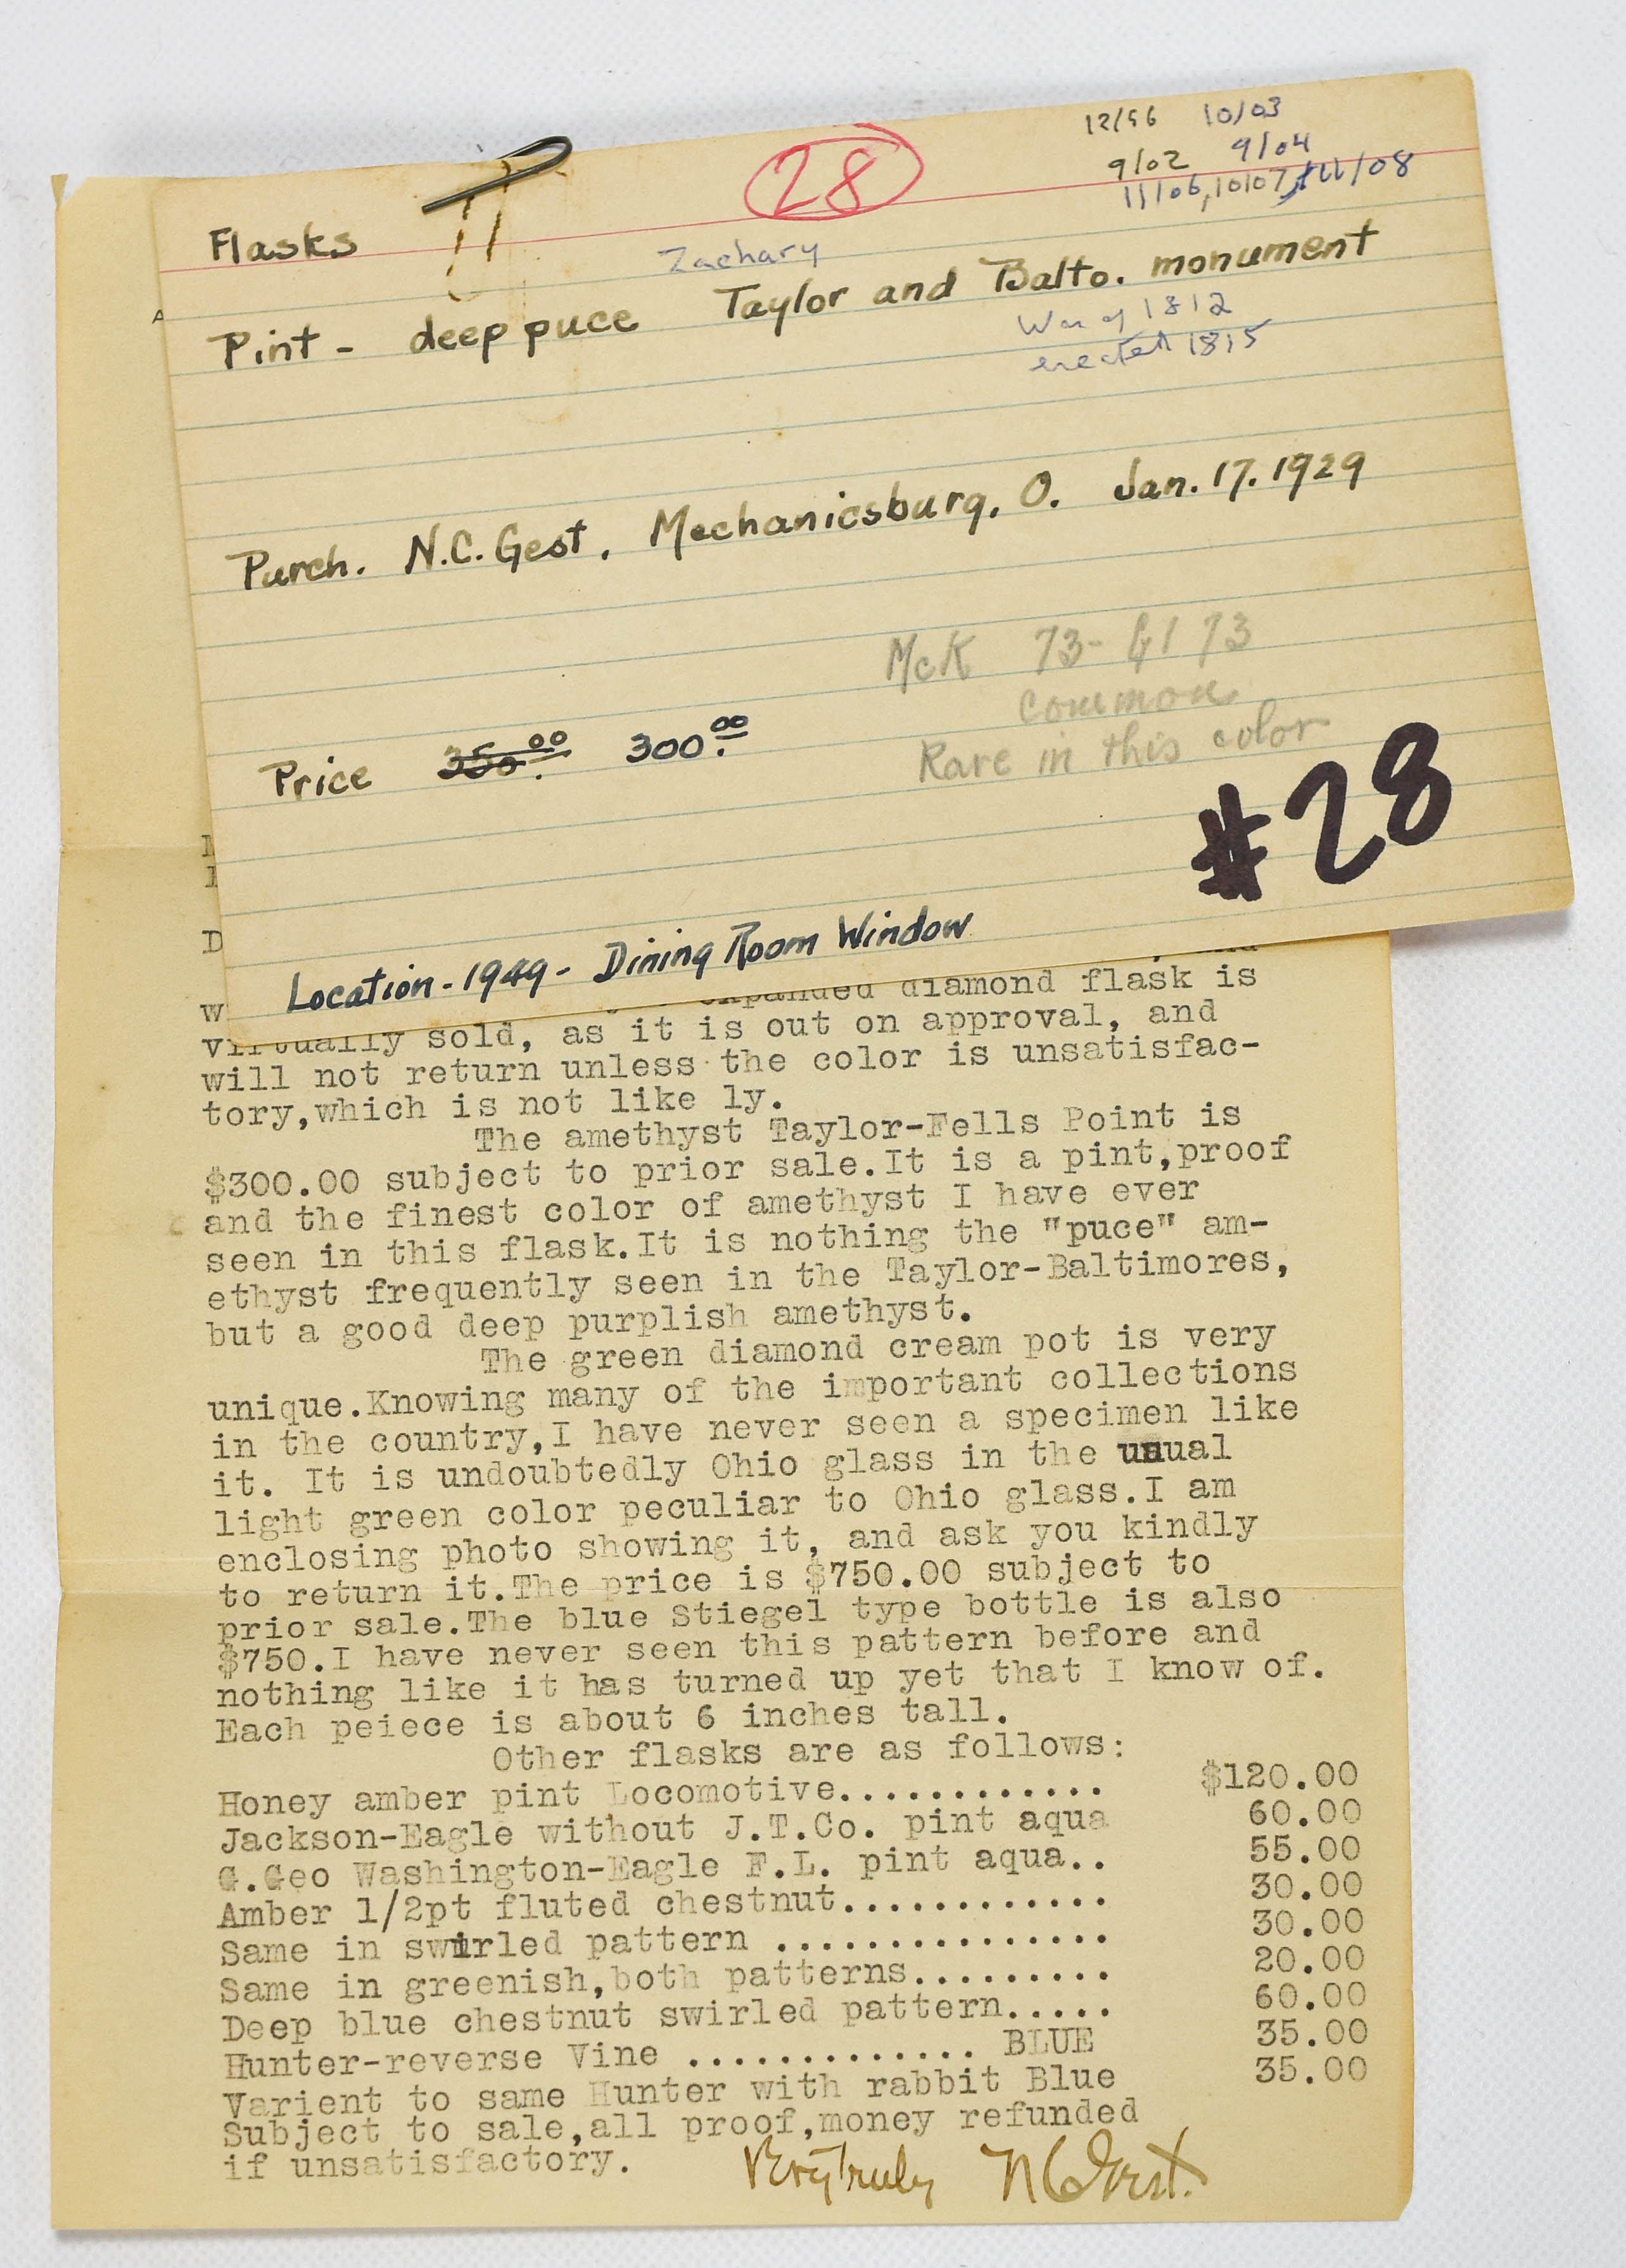 12/56 10/03
28
9/02 9/04
11/06, 10/07, 11/08
Flasks
Zachary
Pint - deep puce Taylor and Balto. monument
War of 1812
erected 1815
Purch. N.C. Gest, Mechanicsburg, O. Jan. 17. 1929
McK 73- G1 73
common
Rare in this color
Price 350.00 300.00
#28
Location - 1949 - Dining Room Window
D
w expanded diamond flask is
virtually sold, as it is out on approval, and
will not return unless the color is unsatisfac-
tory,which is not like ly.
The amethyst Taylor-Fells Point is
$300.00 subject to prior sale.It is a pint,proof
and the finest color of amethyst I have ever
seen in this flask.It is nothing the "puce" am-
ethyst frequently seen in the Taylor-Baltimores,
but a good deep purplish amethyst.
The green diamond cream pot is very
unique.Knowing many of the important collections
in the country,I have never seen a specimen like
it. It is undoubtedly Ohio glass in the usual
light green color peculiar to Ohio glass.I am
enclosing photo showing it, and ask you kindly
to return it.The price is $750.00 subject to
prior sale.The blue Stiegel type bottle is also
$750.I have never seen this pattern before and
nothing like it has turned up yet that I know of.
Each peiece is about 6 inches tall.
Other flasks are as follows:
Honey amber pint Locomotive............ $120.00
Jackson-Eagle without J.T.Co. pint aqua 60.00
G.Geo Washington-Eagle F.L. pint aqua.. 55.00
Amber 1/2pt fluted chestnut............ 30.00
Same in swirled pattern ............... 30.00
Same in greenish,both patterns......... 20.00
Deep blue chestnut swirled pattern..... 60.00
Hunter-reverse Vine ............. BLUE 35.00
Varient to same Hunter with rabbit Blue 35.00
Subject to sale,all proof,money refunded
if unsatisfactory.
Very Truly N C Gest.